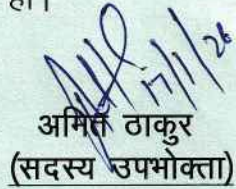 हो।
17/1/26
अमित ठाकुर
(सदस्य उपभोक्ता)